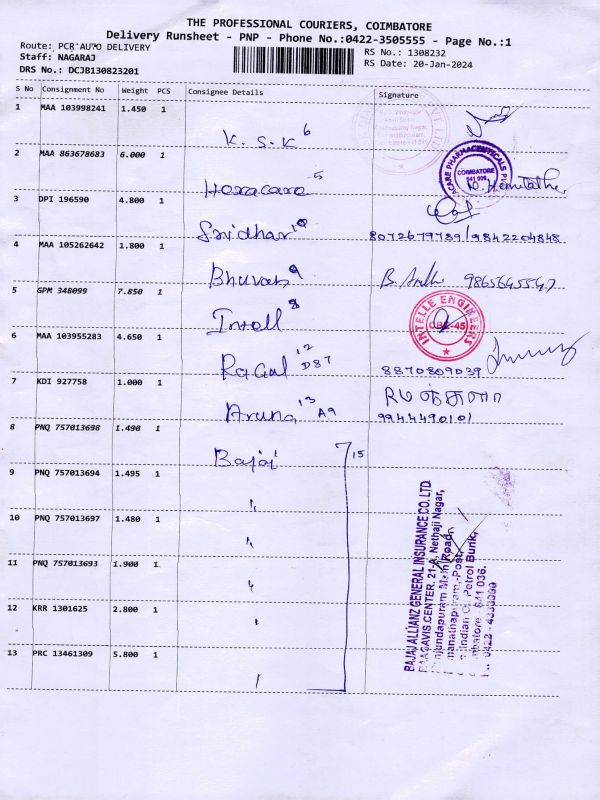 THE PROFESSIONAL COURIERS, COIMBATORE
Delivery Runsheet - PNP - Phone No.:0422-3505555 - Page No.:1
Route: PCR AUTO DELIVERY
Staff: NAGARAJ
DRS No.: DCJB130823201
RS No.: 1308232
RS Date: 20-Jan-2024
S No Consignment No Weight PCS Consignee Details Signature
1 MAA 103998241 1.450 1
K. S. K 6
2 MAA 863678683 6.000 1
Hexacare 5
COIMBATORE
641 009
3 DPI 196590 4.800 1
Sridhar
8072679739/9842204848
4 MAA 105262642 1.800 1
Bhuvan 9
B. 9865645547
5 GPM 348099 7.850 1
Intell 8
INTELLE ENGINEERS
CBE-45
6 MAA 103955283 4.650 1
Ragul 12 D87
8870809039
7 KDI 927758 1.000 1
Aruna 13 A9
9944490101
8 PNQ 757013698 1.490 1
Bajaj 15
9 PNQ 757013694 1.495 1
"
10 PNQ 757013697 1.480 1
"
11 PNQ 757013693 1.900 1
"
12 KRR 1301625 2.800 1
"
13 PRC 13461309 5.800 1
"
BAJAJ ALLIANZ GENERAL INSURANCE CO. LTD.
RAAGAVIS CENTER, 21-A, Nethaji Nagar,
Main Road,
Post,
Indian Oil Petrol Bunk,
641 036.